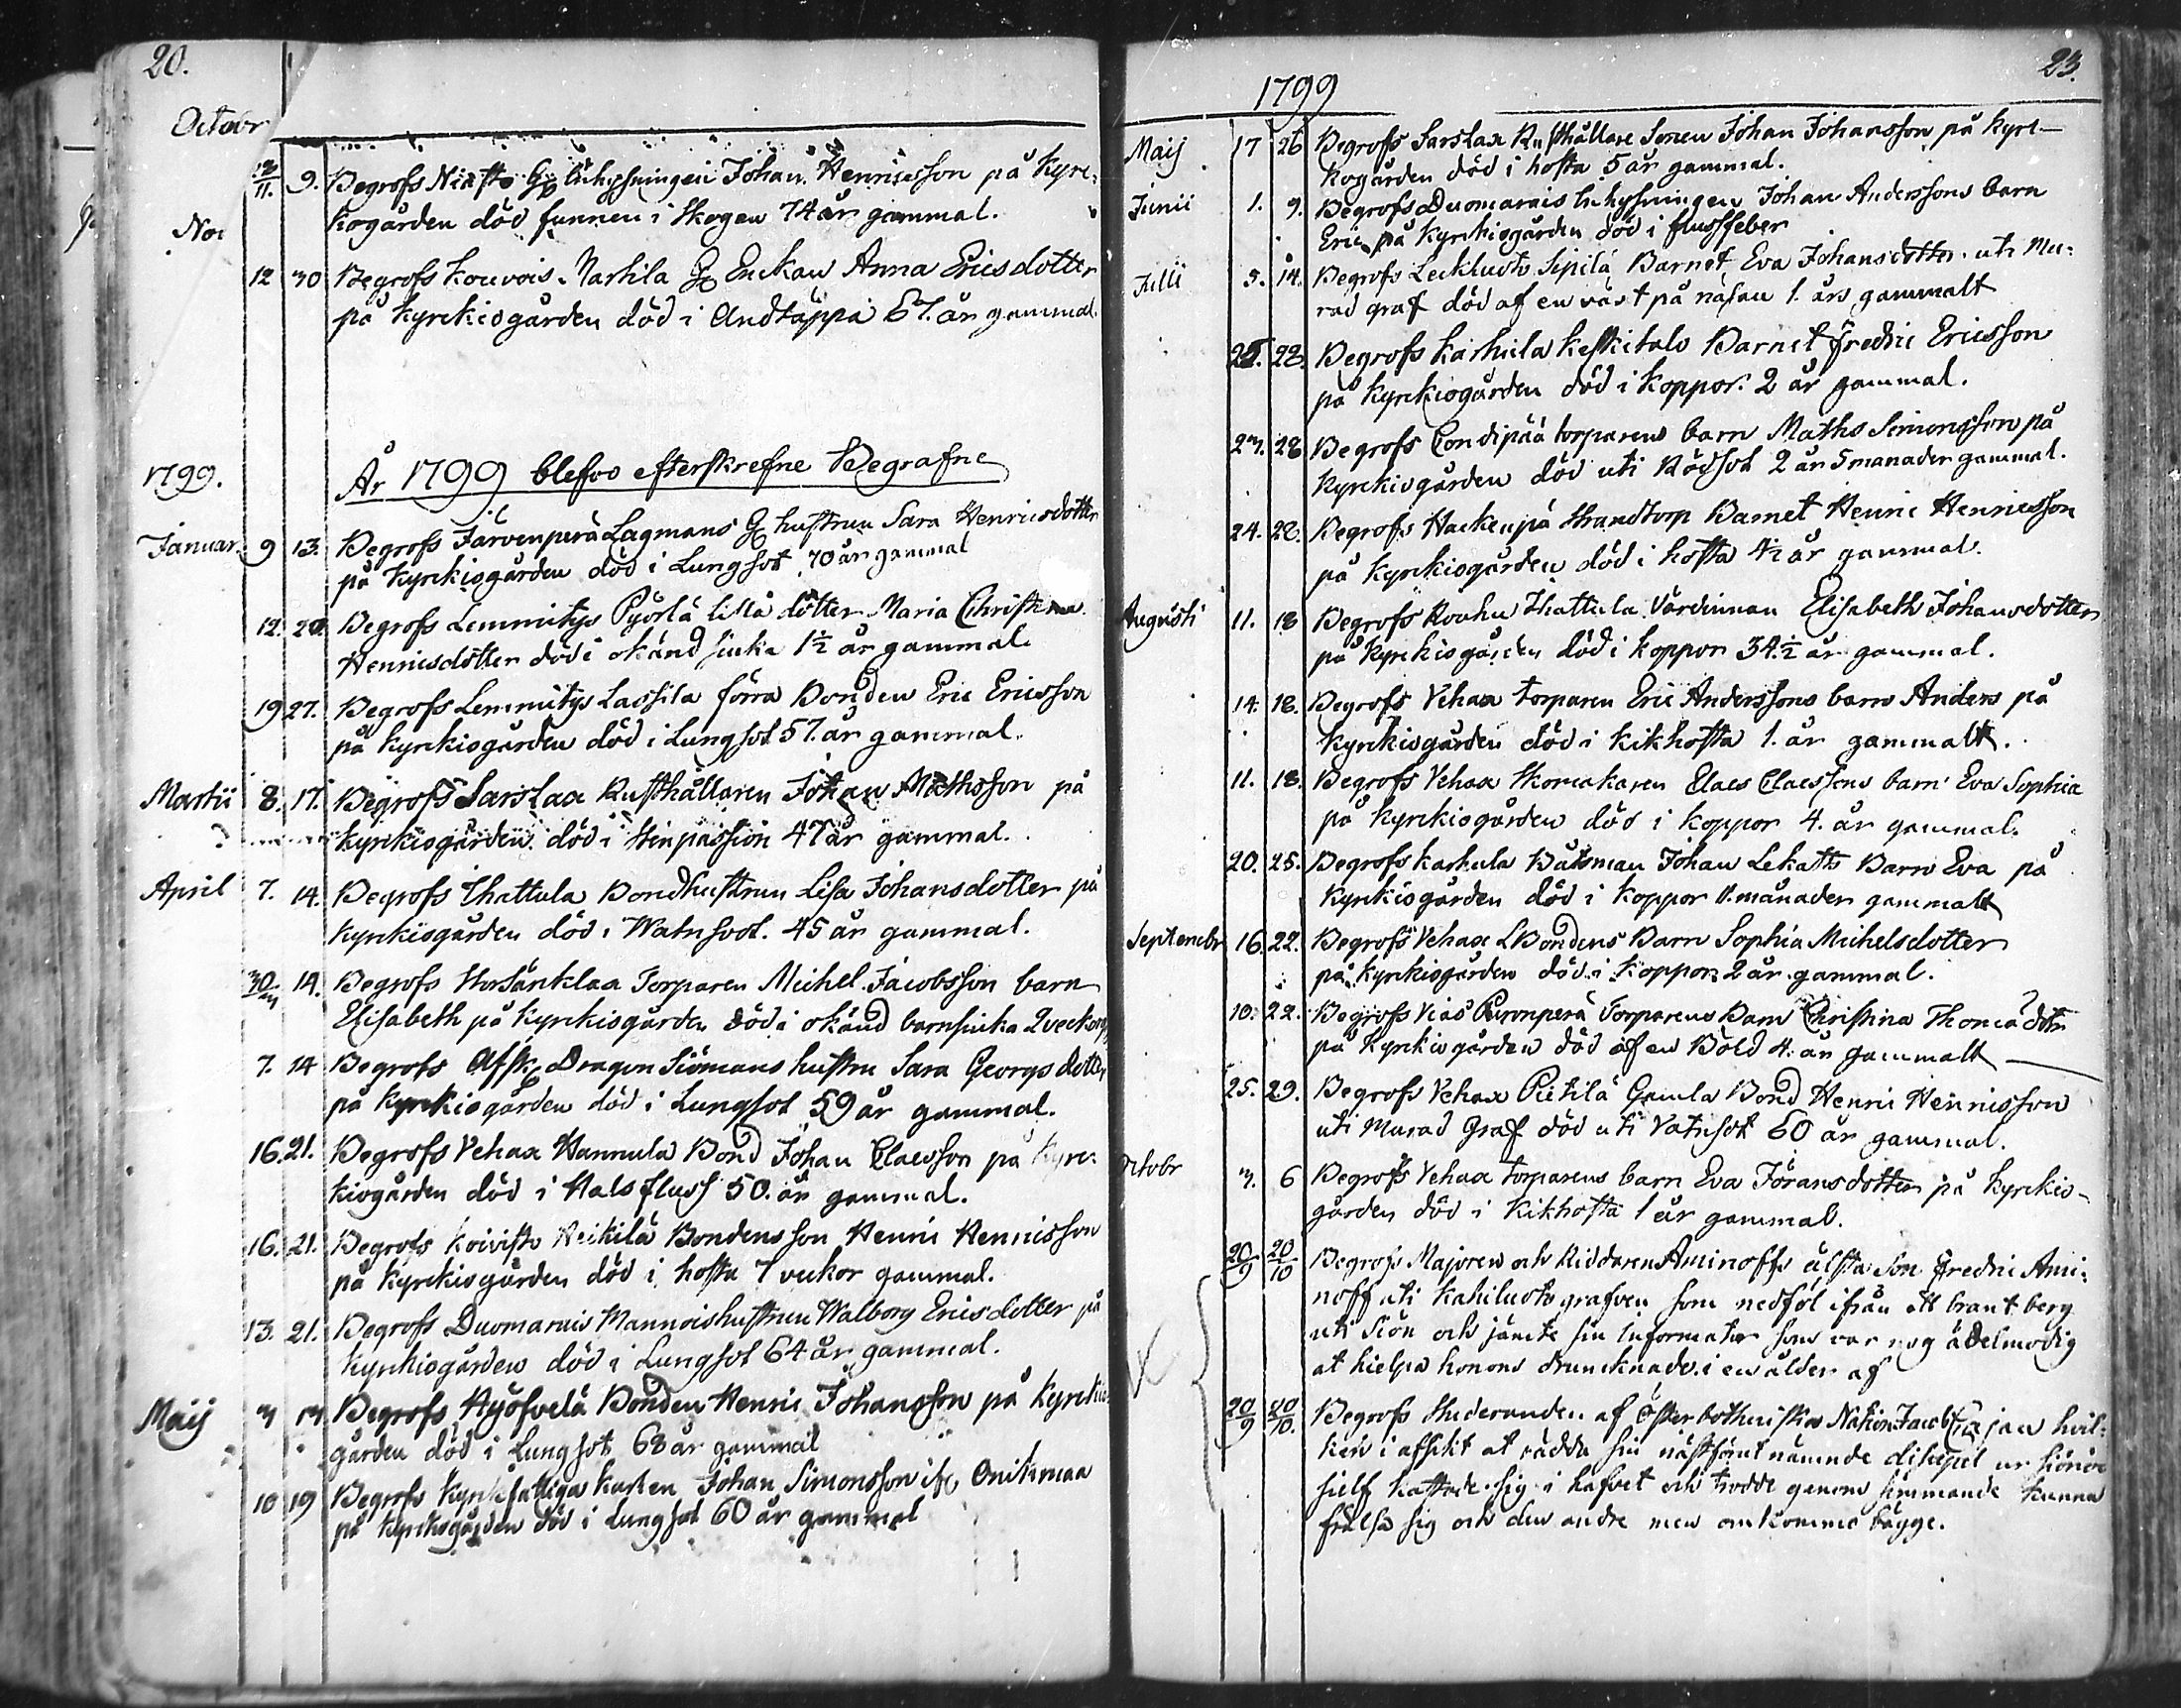 20.
Octobr
13/11. 9. Begrofs Niasto G inhysningen Johan Henricsson på Kyrc-
kogården död funnen i Skogen 74 år gammal.
Nov
12 30 Begrofs Kouvois Markila G Enckan Anna Ericsdotter
på Kyrckiogården död i Andtäppa 67. år gammal.
1799. År 1799 blefvo efterskrefne Begrafne
Januar. 9 13. Begrofs Järvenperä Lagmans G hustrun Sara Henricsdotter
på Kyrckiogården död i Lungsot 70 år gammal
12. 20. Begrofs Lemmitys Pyörlä lilla dotter Maria Christina
Henricsdotter död i okänd siuka 1½ år gammal.
19 27. Begrofs Lemmitys Lassila förra Bonden Eric Ericsson
på Kyrckiogården död i Lungsot 57. år gammal.
Martii 8. 17. Begrofs Sarslax Rusthållaren Johan Mathsson på
Kyrckiogården död i Stenpassion 47 år gammal.
April 7. 14. Begrofs Thattula Bondhustrun Lisa Johansdotter på
Kyrckiogården död i Watnsot. 45 år gammal.
30/m 14. Begrofs Torparen Michel Jacobsson barn
Elisabeth på Kyrckiogården död i okänd barnsiuka 2 veckor g
7. 14 Begrofs Afsk Dragon Siömans hustru Sara Georgsdotter
på Kyrckiogården död i Lungsot 59 år gammal.
16. 21. Begrofs Vehax Hannula Bond Johan Claesson på Kyrc-
kiogården död i Halsfluss 50. år gammal.
16. 21. Begrofs Koivisto Heikilä Bondens son Henric Henricsson
på Kyrckiogården död i hosta 7 veckor gammal.
13. 21. Begrofs Duomarnis Mannoishustrun Walborg Ericsdotter på
Kyrckiogården död i Lungsot 64 år gammal.
Maij Begrofs Hyöfvelä Bonden Henric Johansson på Kyrckio-
gården död i Lungsot 68 år gammal
10 19 Begrofs Kyrckfattiga Karlen Johan Simonsson ifr. Onikmaa
på Kyrckogården död i Lungsot 60 år gammal
23.
1799
Maij 17 26 Begrofs Sarslax Rusthållare Sonen Johan Johansson på Kyrc-
kogården död i hosta 5 år gammal.
Junii 1. 9. Begrofs Duomarais Inhysningen Johan Anderssons barn
Eric på Kyrckiogården död i flussfeber
Julii 5. 14. Begrofs Leikluoto Sipilä Barnet Eva Johansdotter uti Mu-
rad graf död af en växt på näsan 1. års gammalt
25. 28. Begrofs Karhula Keskitalo Barnet Fredric Ericsson
på Kyrckiogården död i Koppor 2 år gammal.
23. 28 Begrofs Condipää torparens barn Maths Simonsson på
Kyrckiogården död uti Rödsot 2 år 5 manader gammal.
24. 28. Begrofs Hackenpä Strandtorp Barnet Henric Henricsson
på Kyrckiogården död i hosta 4½ år gammal.
Augusti 11. 18 Begrofs Rouhu Thattula Värdinnan Elisabeth Johansdotter
på Kyrckiogården död i koppor 34.½ år gammal.
14. 18. Begrofs Vehax torparen Eric Anderssons barn Anders på
Kyrckiogården död i Kikhosta 1. år gammalt.
11. 18. Begrofs Vehax Skomakaren Claes Claessons barn Eva Sophia
på Kyrckiogården död i koppor 4. år gammal.
20. 25. Begrofs Karhula Båtsman Johan Lekatts Barn Eva på
Kyrckiogården död i Koppor 11. månader gammalt
Septembr 16. 22. Begrofs Vehax L Bondens Barn Sophia Michelsdotter
på Kyrckiogården död i Koppor 2 år gammal.
10. 22. Begrofs Vias Puronperä Torparens Barn Christina Thomædotr
på Kyrckiogården död af en Böld 4. år gammalt
25. 29. Begrofs Vehax Pietilä Gamla Bond Henric Henricsson
uti Murad Graf död uti Vatnsot 60 år gammal.
Octobr 3. 6 Begrofs Vehax torparens barn Eva Göransdotter på Kyrckio-
gården död i Kikhosta 1 år gammal.
20/9 20/10 Begrofs Majoren och Riddaren Aminoffs älsta Son Fredric Ami-
noff uti Kakiluoto grafven som nedföl ifrån ett brant berg
uti Siön och jämte sin Informator som var nog ädelmodig
at hielpa honom druncknade i en ålder af
20/9 20/10. Begrofs Studeranden af Österbothniska Nation Jacob jan hvil-
ken i afsikt at rädda sin nästförut nämnde discipel ur siönöd
sielf kastade sig i hafvet och trodde genom simmande kunna
frälsa sig och den andre men omkommo bägge.